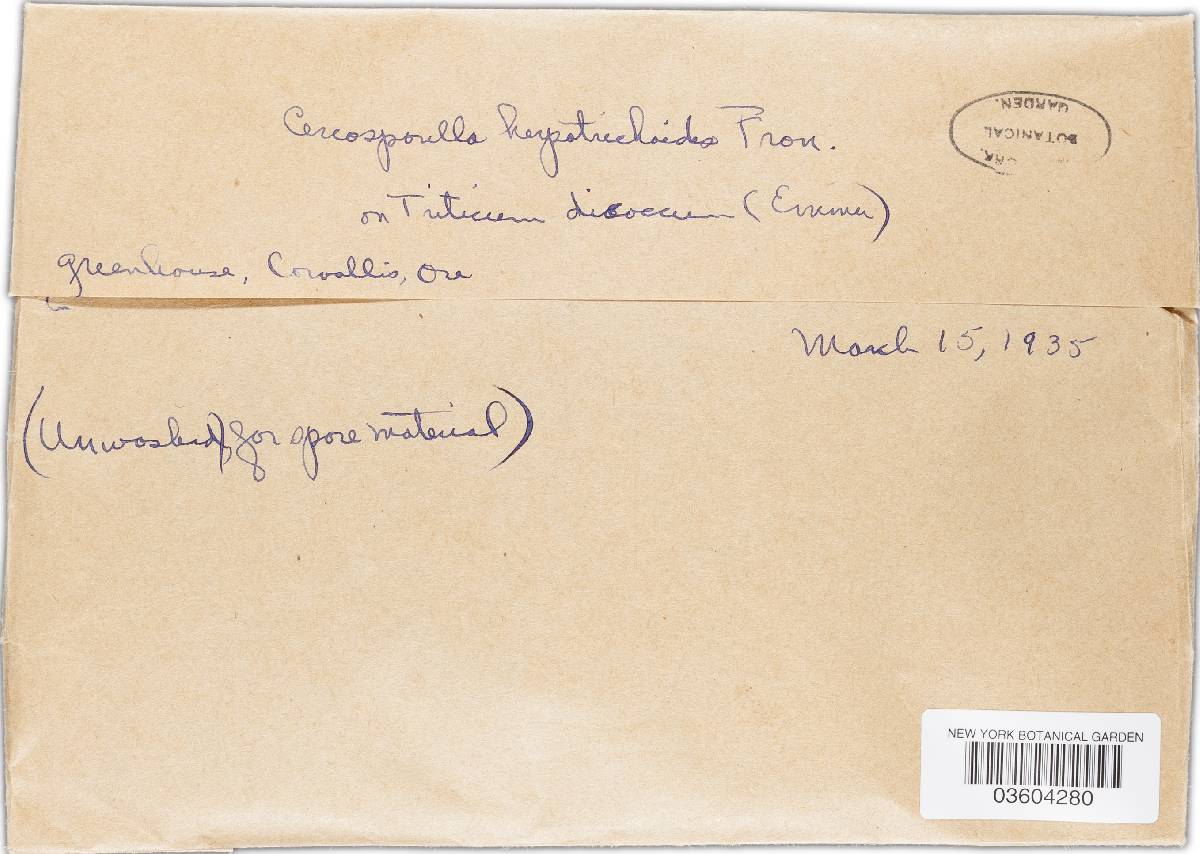 Cercosporella herpotrichoides Fron.
on Triticum dicoccum (Emmer)
greenhouse, Corvallis, Ore
March 15, 1935
(Unwashed for spore material)
BOTANICAL
GARDEN.
NEW YORK BOTANICAL GARDEN
03604280